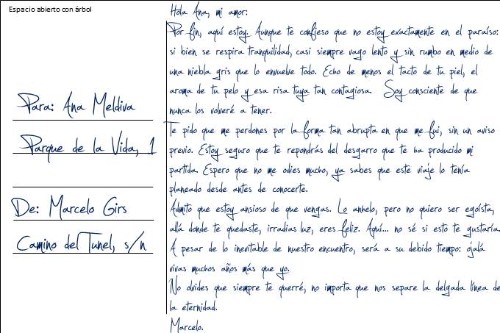 Espacio abierto con árbol
Para: Ana Meldiva
Parque de la Vida, 1
De: Marcelo Girs
Camino del Tunel, s/n
Hola Ana, mi amor:
Por fin, aquí estoy. Aunque te confieso que no estoy exactamente en el paraíso:
si bien se respira tranquilidad, casi siempre vago lento y sin rumbo en medio de
una niebla gris que lo envuelve todo. Echo de menos el tacto de tu piel, el
aroma de tu pelo y esa risa tuya tan contagiosa. Soy consciente de que
nunca los volveré a tener.
Te pido que me perdones por la forma tan abrupta en que me fui, sin un aviso
previo. Estoy seguro que te repondrás del desgarro que te ha producido mi
partida. Espero que no me odies mucho, ya sabes que este viaje lo tenía
planeado desde antes de conocerte.
Admito que estoy ansioso de que vengas. Lo anhelo, pero no quiero ser egoísta,
allá donde te quedaste, irradias luz, eres feliz. Aquí... no sé si esto te gustaría.
A pesar de lo inevitable de nuestro encuentro, será a su debido tiempo: ojalá
vivas muchos años más que yo.
No olvides que siempre te querré, no importa que nos separe la delgada línea de
la eternidad.
Marcelo.